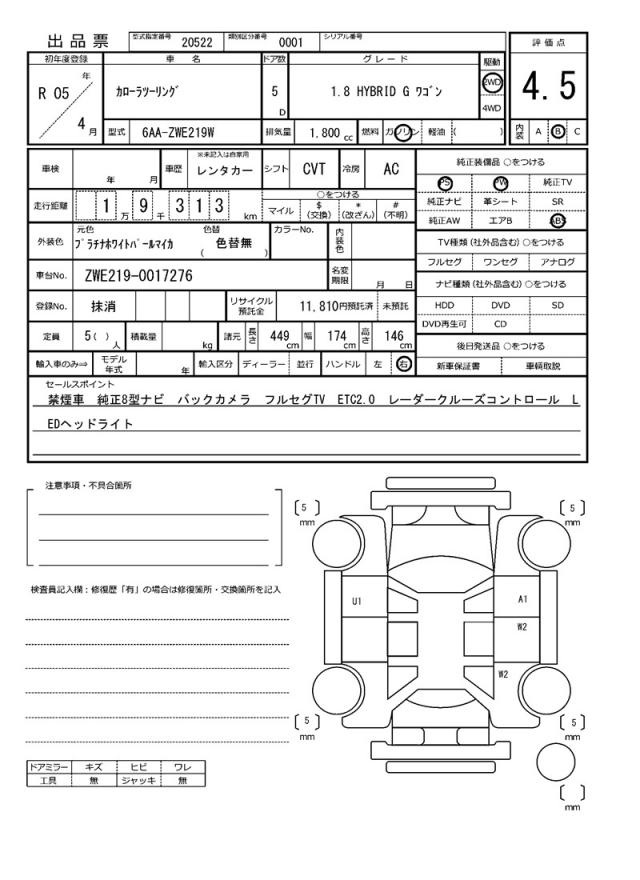 出品票 型式指定番号 20522 類別区分番号 0001 シリアル番号
評価点
4.5
内装 A B C
初年度登録 車名 ドア数 グレード 駆動
R 05 年 4 月 カローラツーリング 5 D 1.8 HYBRID G ワゴン 2WD 4WD
型式 6AA-ZWE219W 排気量 1.800 cc 燃料 ガソリン 軽油 ( )
車検 年 月 車歴 ※未記入は自家用 レンタカー シフト CVT 冷房 AC
走行距離 1 万 9 千 3 1 3 km ○をつける
マイル $(交換) *(改ざん) #(不明)
外装色 元色 プラチナホワイトパールマイカ 色替 ( 色替無 ) カラーNo. 内装色
車台No. ZWE219-0017276 名変期限 月 日
登録No. 抹消 リサイクル預託金 11,810円預託済 未預託
定員 5( ) 人 積載量 kg 諸元 長さ 449 cm 幅 174 cm 高さ 146 cm
輸入車のみ⇒ モデル年式 年 輸入区分 ディーラー 並行 ハンドル 左 右
純正装備品 ○をつける
PS PW 純正TV
純正ナビ 革シート SR
純正AW エアB ABS
TV種類 (社外品含む) ○をつける
フルセグ ワンセグ アナログ
ナビ種類 (社外品含む) ○をつける
HDD DVD SD
DVD再生可 CD
後日発送品 ○をつける
新車保証書 車輌取説
セールスポイント
禁煙車 純正8型ナビ バックカメラ フルセグTV ETC2.0 レーダークルーズコントロール L
EDヘッドライト
注意事項・不具合箇所
検査員記入欄：修復歴「有」の場合は修復箇所・交換箇所を記入
ドアミラー キズ ヒビ ワレ
工具 無 ジャッキ 無
[ 5 ] mm
[ 5 ] mm
U1
A1
W2
W2
[ 5 ] mm
[ 5 ] mm
[ ] mm